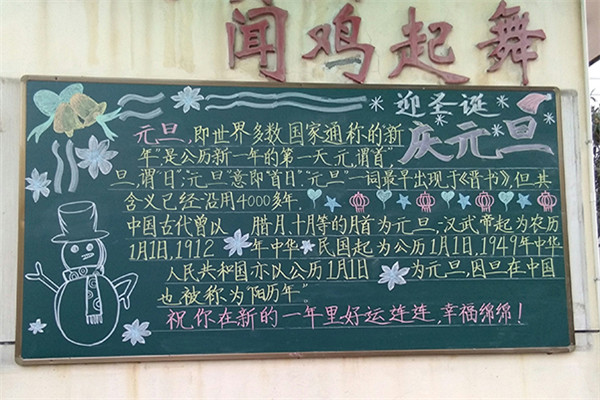 闻鸡起舞
迎圣诞
庆元旦
元旦，即世界多数国家通称的“新
年”是公历新一年的第一天。元，谓“首”，
旦，谓“日”；“元旦”意即“首日”。“元旦”一词最早出现于《晋书》，但其
含义已经沿用4000多年。
中国古代曾以 腊月、十月等的月首为元旦，汉武帝起为农历
1月1日，1912 年中华 民国起为公历1月1日，1949年中华
人民共和国亦以公历1月1日 为元旦，因旦在中国
也被称为“阳历年”
祝你在新的一年里好运连连，幸福绵绵！